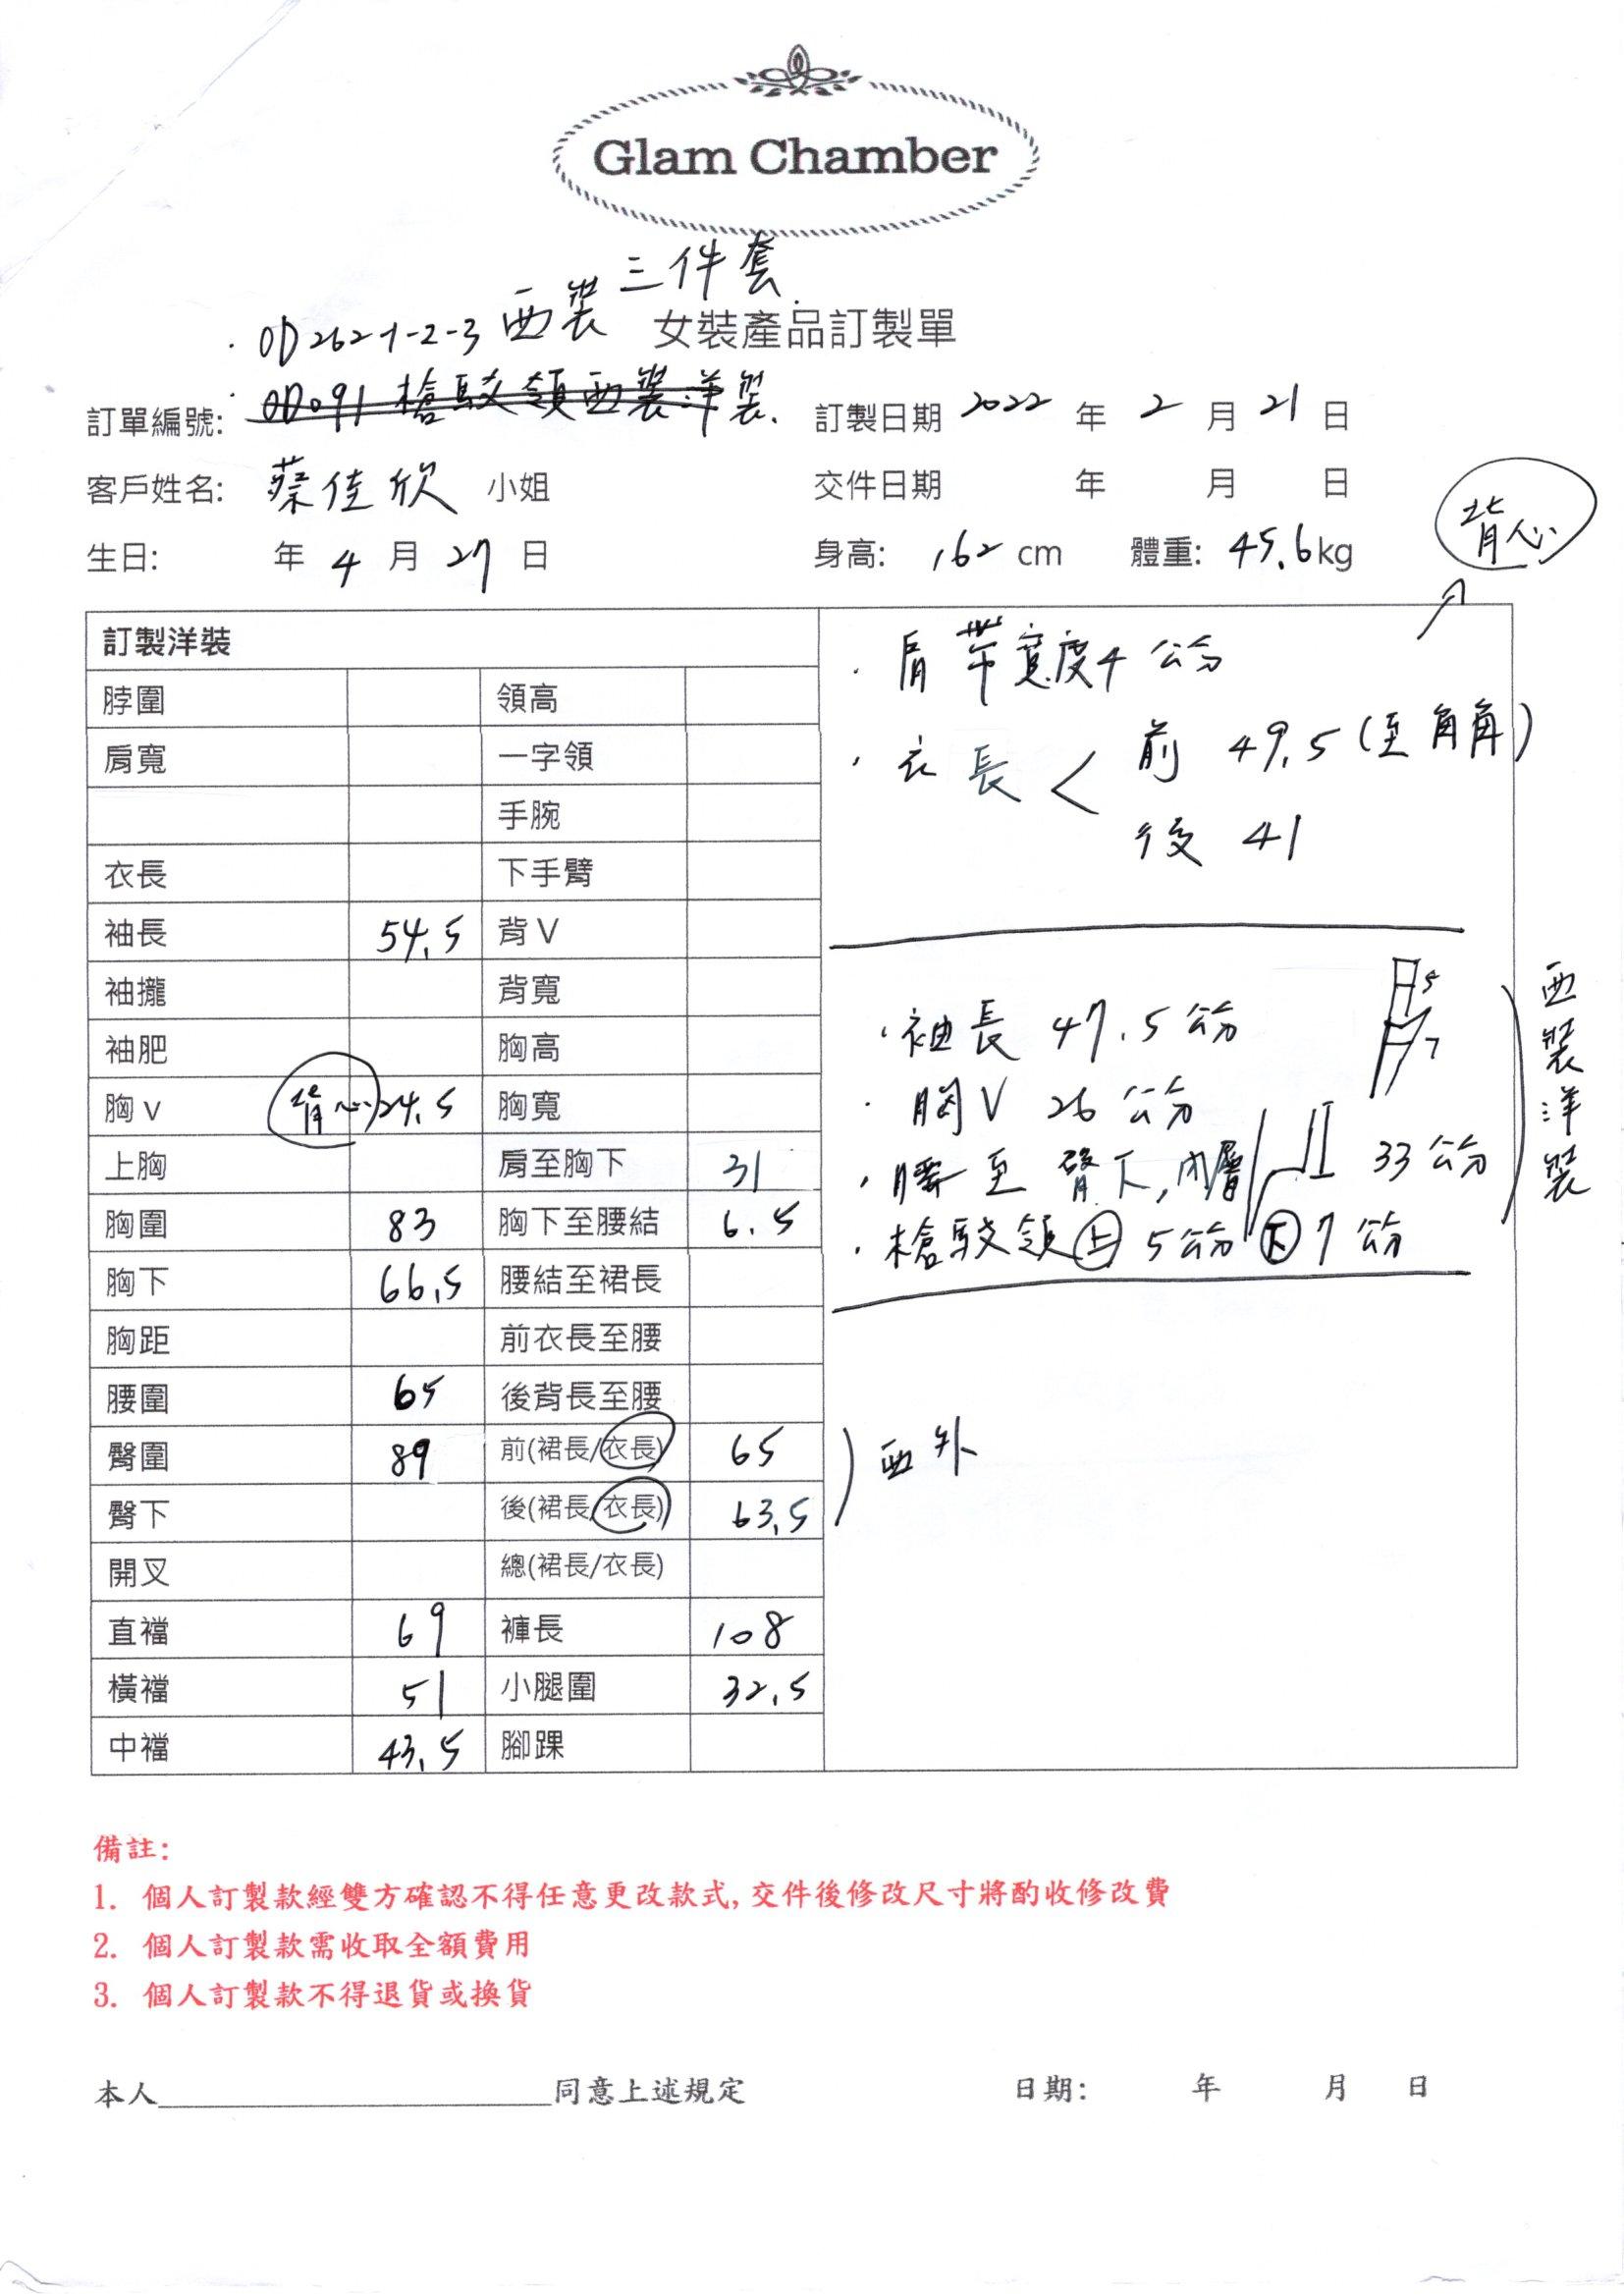 Glam Chamber
三件套
·OD262-1-2-3 西裝 女裝產品訂製單
·OD091 槍駁領西裝洋裝.
訂單編號: 訂製日期 2022 年 2 月 21 日
客戶姓名: 蔡佳欣 小姐 交件日期 年 月 日
生日: 年 4 月 27 日 身高: 162 cm 體重: 45.6kg
背心
訂製洋裝
脖圍 領高
肩寬 一字領
手腕
衣長 下手臂
袖長 54.5 背V
袖攏 背寬
袖肥 胸高
胸v 背心 24.5 胸寬
上胸 肩至胸下 31
胸圍 83 胸下至腰結 6.5
胸下 66.5 腰結至裙長
胸距 前衣長至腰
腰圍 65 後背長至腰
臀圍 89 前(裙長/衣長) 65
臀下 後(裙長/衣長) 63.5
西外
開叉 總(裙長/衣長)
直襠 69 褲長 108
橫襠 51 小腿圍 32.5
中襠 43.5 腳踝
·肩帶寬度4公分
·衣長 < 前 49.5(至角角)
後 41
·袖長 47.5公分
5
7
·胸V 26公分
·腰至臀下,內層 33公分
·槍駁領 上 5公分 下 7公分
西裝洋裝
備註:
1. 個人訂製款經雙方確認不得任意更改款式,交件後修改尺寸將酌收修改費
2. 個人訂製款需收取全額費用
3. 個人訂製款不得退貨或換貨
本人________________同意上述規定 日期: 年 月 日